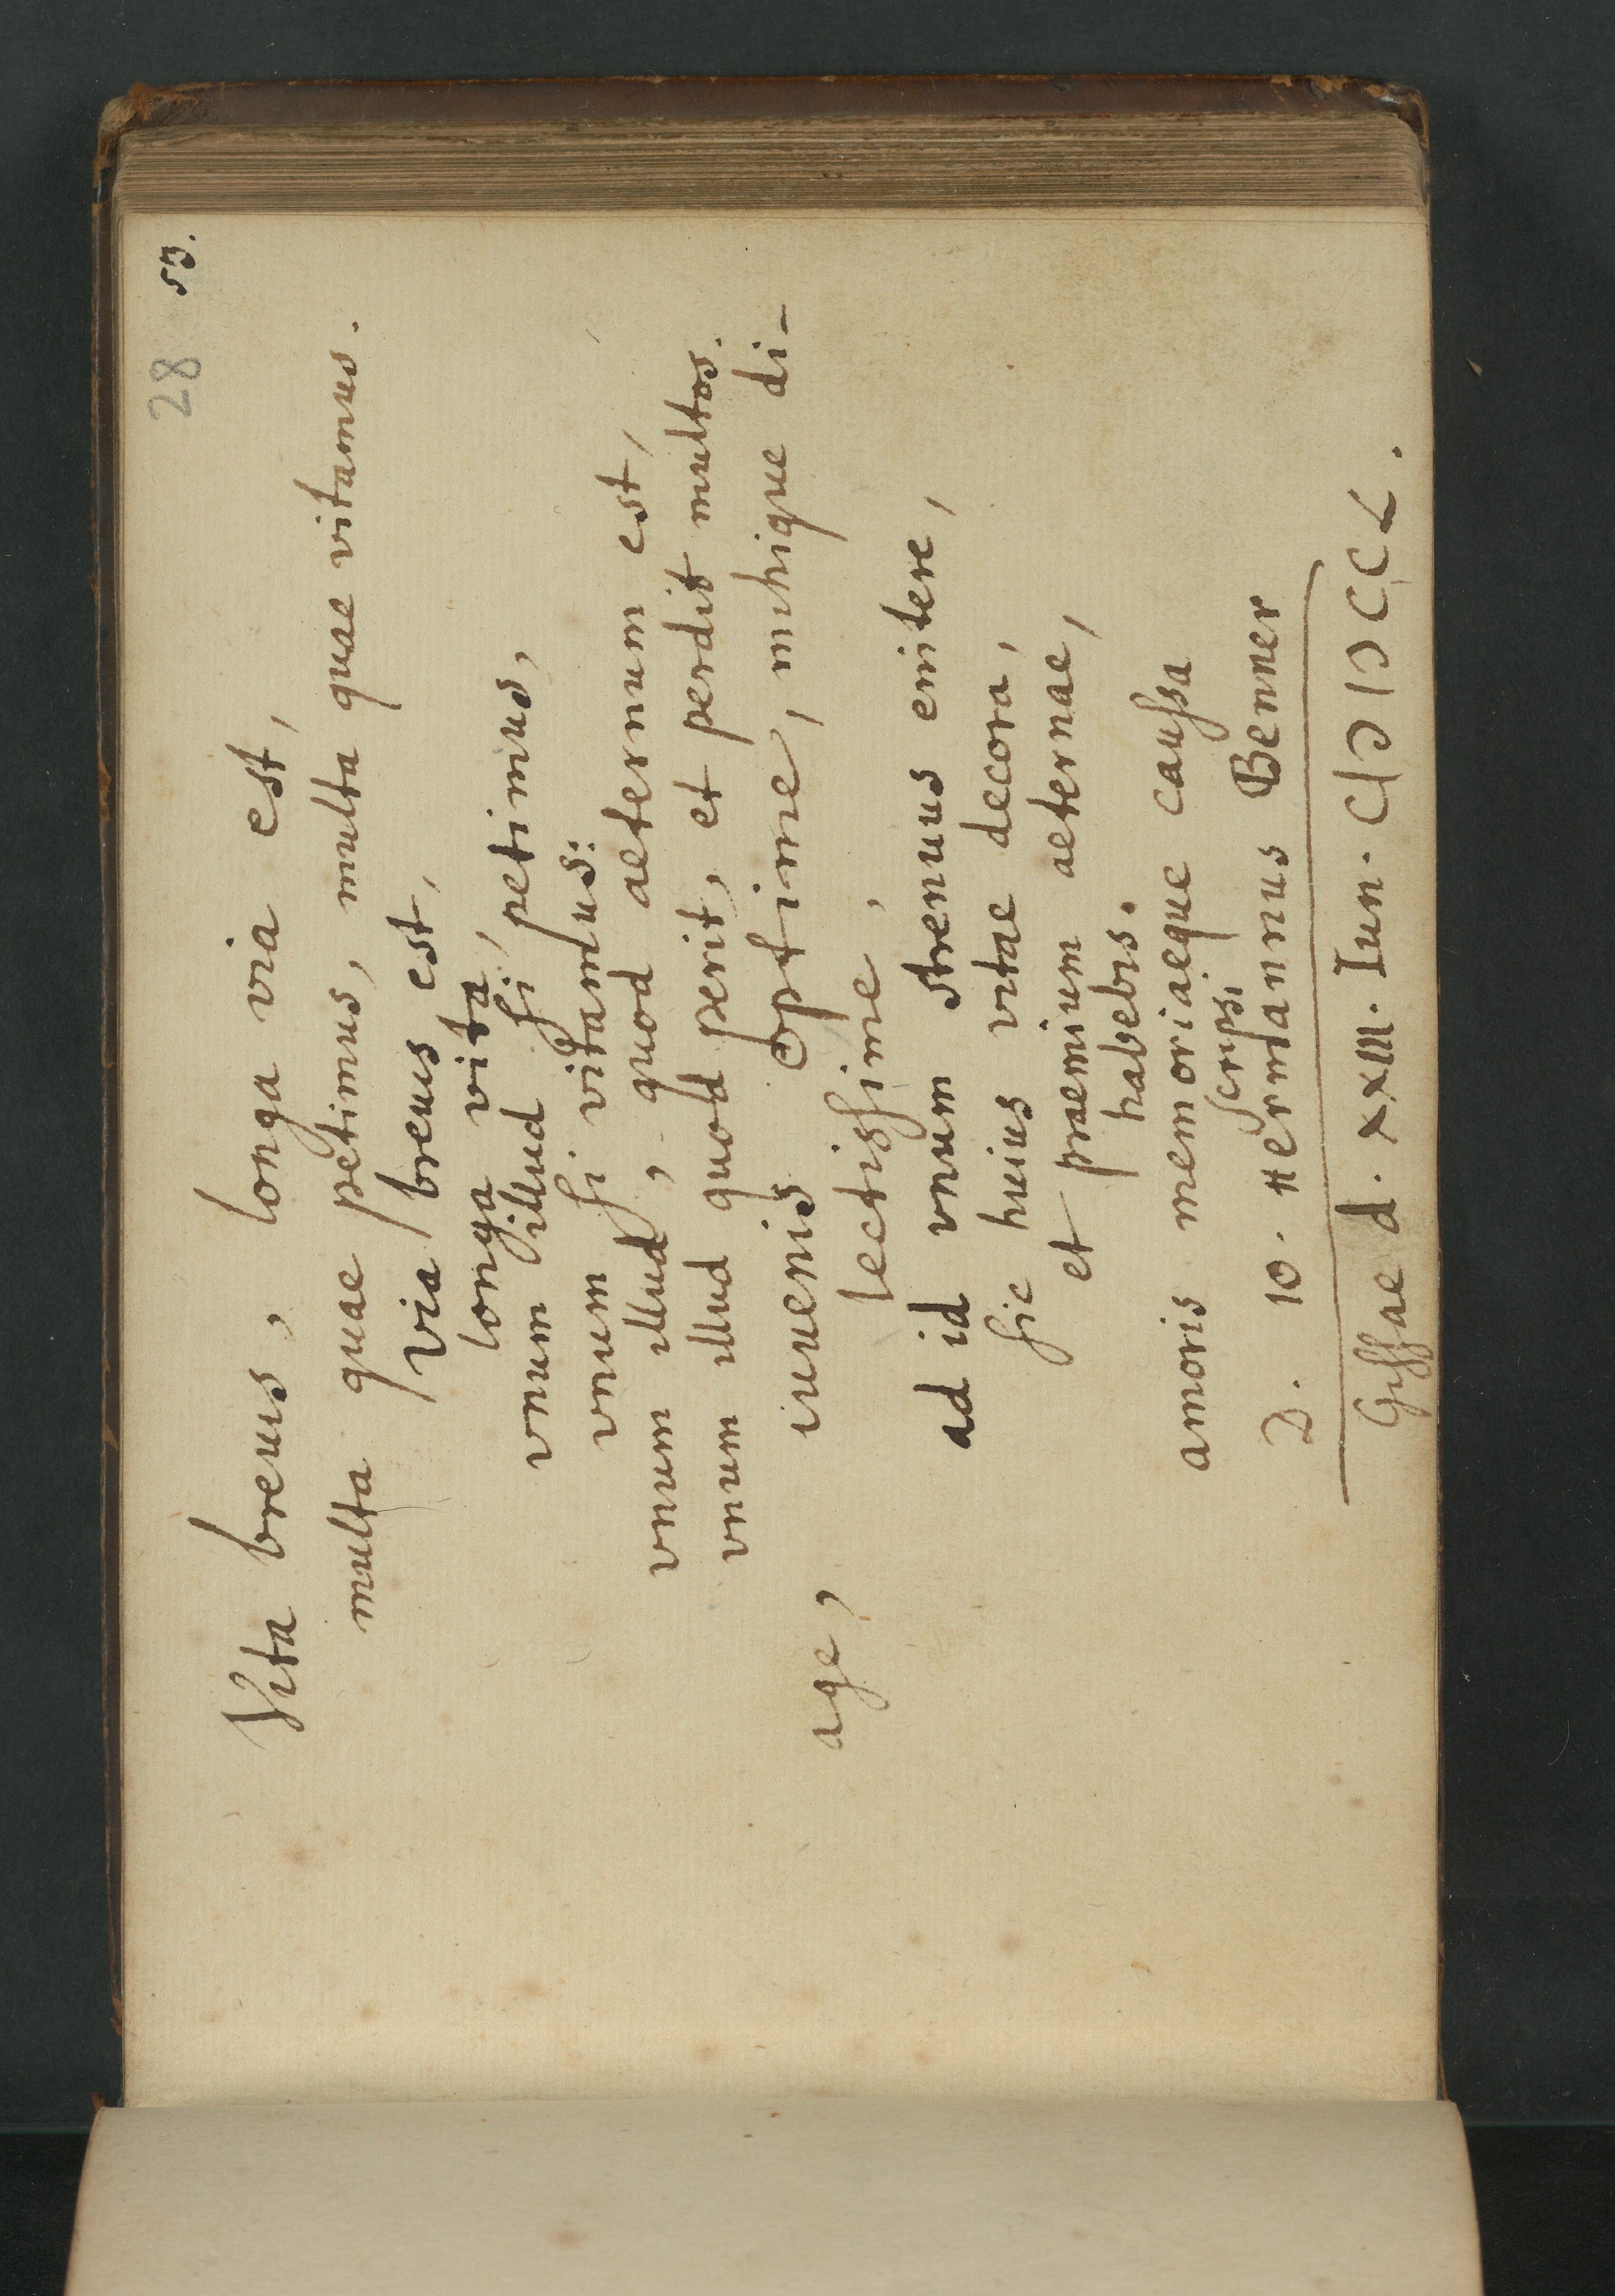 28 53.
Vita breuis, longa via est,
multa quae petimus, multa quae vitamus.
Via breuis est,
longa vita,
vnum illud si petimus,
vnum si vitamus:
vnum illud, quod aeternum est,
vnum illud quod perit, et perdit multos.
age, iuuenis optime, mihique di-
lectissime,
ad id vnum strenuus enitere,
sic huius vitae decora,
et praemium aeternae,
habebis.
amoris memoriaeque caussa
scripsi
D. Io. Hermannus Benner
Gissae d. XXIII. Iun. CIƆIƆCCL.